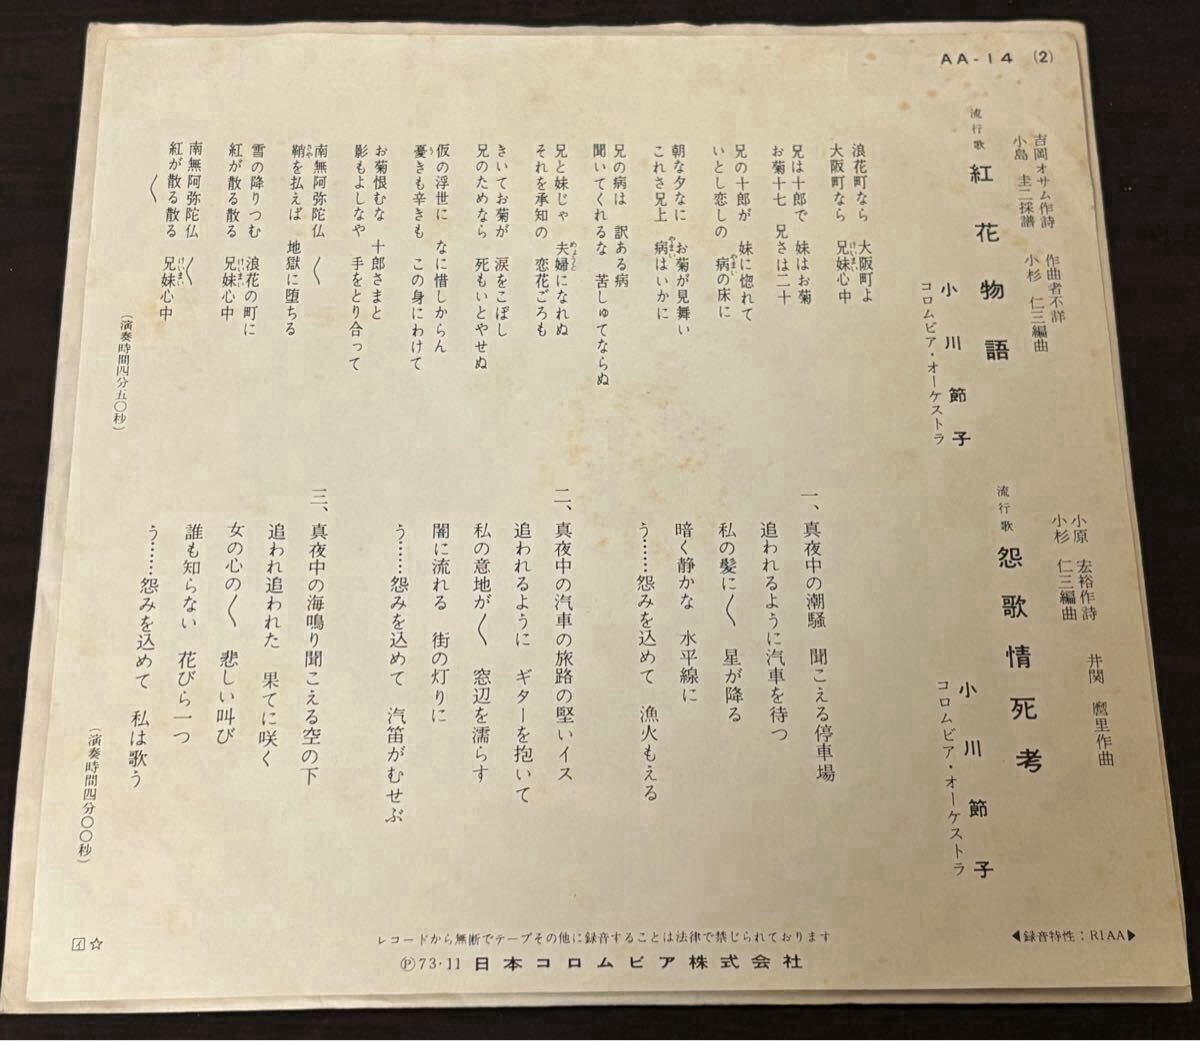 AA-14 (2)
吉岡オサム作詩 作曲者不詳
小島 圭二採譜 小杉 仁三編曲
流行歌 紅花物語
小川節子
コロムビア・オーケストラ
浪花町なら 大阪町よ
大阪町なら 兄妹心中
兄は十郎で 妹はお菊
お菊十七 兄さは二十
兄の十郎が 妹に惚れて
いとし恋しの 病の床に
朝な夕なに お菊が見舞い
これさ兄上 病はいかに
兄の病は 訳ある病
聞いてくれるな 苦しゅてならぬ
兄と妹じゃ 夫婦になれぬ
それを承知の 恋花ごろも
きいてお菊が 涙をこぼし
兄のためなら 死もいとやせぬ
仮の浮世に なに惜しからん
憂きも辛きも この身にわけて
お菊恨むな 十郎さまと
影もよしなや 手をとり合って
南無阿弥陀仏 〱
鞘を払えば 地獄に堕ちる
雪の降りつむ 浪花の町に
紅が散る散る 兄妹心中
南無阿弥陀仏 〱
紅が散る散る 兄妹心中
〱
(演奏時間四分五〇秒)
小原 宏裕作詩 井関 麿里作曲
小杉 仁三編曲
流行歌 怨歌情死考
小川節子
コロムビア・オーケストラ
一、真夜中の潮騒 聞こえる停車場
追われるように汽車を待つ
私の髪に〱 星が降る
暗く静かな 水平線に
う……怨みを込めて 漁火もえる
二、真夜中の汽車の旅路の堅いイス
追われるように ギターを抱いて
私の意地が〱 窓辺を濡らす
闇に流れる 街の灯りに
う……怨みを込めて 汽笛がむせぶ
三、真夜中の海鳴り聞こえる空の下
追われ追われた 果てに咲く
女の心の〱 悲しい叫び
誰も知らない 花びら一つ
う……怨みを込めて 私は歌う
(演奏時間四分〇〇秒)
レコードから無断でテープその他に録音することは法律で禁じられております
◀録音特性：RIAA▶
イ☆
Ⓟ73・11 日本コロムビア株式会社